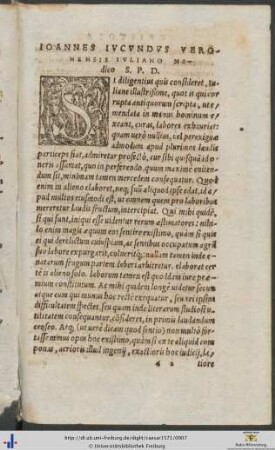 IOANNES IVCVNDVS VERO
NENSIS IVLIANO ME-
dico S. P. D.
SI diligentius quis consideret, Iu-
liane illustrissime, quot is qui cor
rupta antiquorum scripta, ut e-
mendata in manus hominum e-
xeant, curat, labores exhauriat:
quam uerò nullius, uel perexiguæ
admodum apud plurimos laudis
particeps fiat, admiretur profectò, cur sibi quisquā id o-
neris assumat, quo in perferendo, quum maxime eniten-
dum sit, minimam tamen mercedem consequatur. Quod
enim in alieno elaboret, neq; suū aliquid ipse edat, id a-
pud multos eiusmodi est, ut omnem quem pro laboribus
mereretur laudis fructum, intercipiat. Qui mihi quidē,
si qui sunt, iniqui esse uidentur rerum æstimatores: nihi-
lo enim magis æquum eos sentire existimo, quàm si quis
ei qui derelictum cuiuspiam, ac sentibus occupatum agrū
suo labore expurgarit, colueritq́;: nullam tamen inde e-
natarum frugum partem deberi arbitretur. elaborat cer
tè is alieno solo. laborum tamen est quoddam iure præ-
mium constitutum. Ac mihi quidem longè uidetur secus
atque eum qui nunc hoc rectè exequatur, seu rei ipsius
difficultatem spectes, seu quam inde literarum studiosi u-
tilitatem consequantur, cōsideret, in primis laudandum
censeo. Atq; (ut uerè dicam quod sentio) non multò fa-
cilius omnino opus hoc existimo, quàm si ex te aliquid com
ponas, acrioris illud ingenij, exactioris hoc iudicij, la-
a 2 tiore
http://dl.ub.uni-freiburg.de/diglit/caesar1571/0007
© Universitätsbibliothek Freiburg